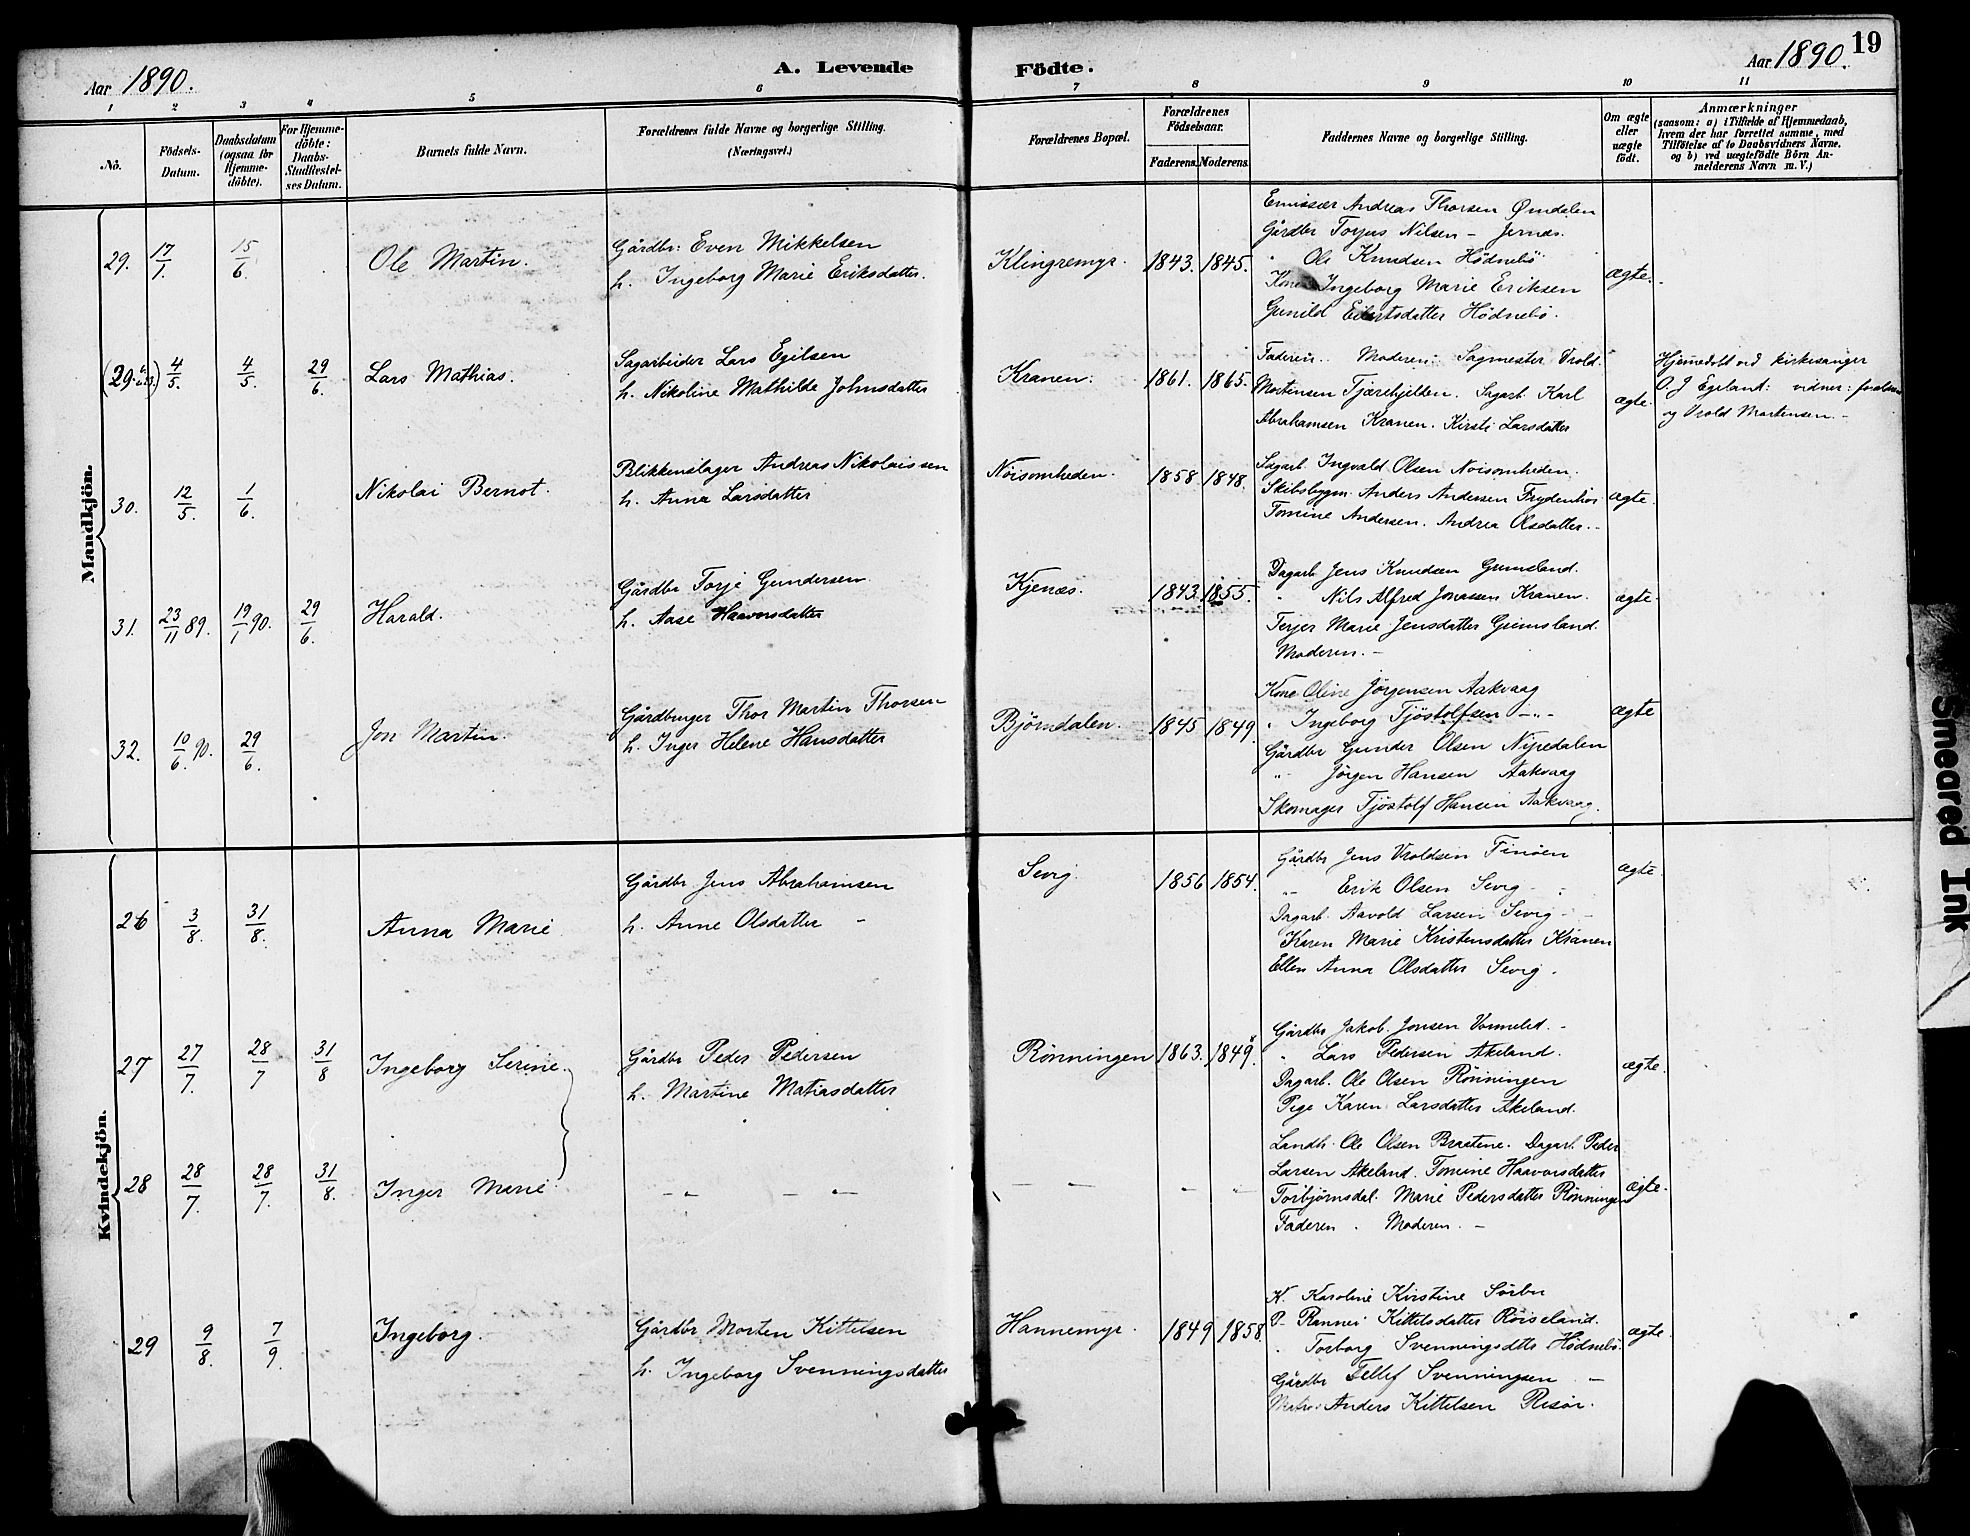 Aar 1890.
A. Levende
Födte.
Aar 1890.
19
1 2 3 4 5 6 7 8 9 10 11
No.
Födsels-
Datum.
Daabsdatum
(ogsaa for
Hjemme-
döbte).
For Hjemme-
döbte:
Daabs-
Stadfæstel-
ses Datum.
Barnets fulde Navn.
Forældrenes fulde Navne og borgerlige Stilling.
(Næringsvei.)
Forældrenes Bopæl.
Forældrenes
Födselsaar.
Faderens. Moderens.
Faddernes Navne og borgerlige Stilling.
Om ægte
eller
uægte
födt.
Anmærkninger
(saasom: a) i Tilfælde af Hjemmedaab,
hvem der har forrettet samme, med
Tilföielse af to Daabsvidners Navne,
og b) ved uægtefödte Börn An-
melderens Navn m. V.)
Mandkjön.
29. 17/1. 15/6. Ole Martin.
Gårdbr: Even Mikkelsen
h. Ingeborg Marie Eriksdatter.
Klingremyr. 1843. 1845.
Emissær Andreas Thorsen Ømdalen
Gårdbr Torjus Nilsen – Jernæs.
" Ole Knudsen Hödnebö
Kone Ingeborg Marie Eriksen
Gunild Edvartsdatter Hödnebö.
ægte.
(29. b.) 4/5. 4/5. 29/6. Lars Mathias.
Sagarbeider Lars Egilsen
h. Nikoline Mathilde Johnsdatter
Kranen. 1861. 1865.
Faderen. Moderen. Sagmester Vrold
Mortensen Tjærehjelden. Sagarb. Karl
Abrahamsen Kranen. Kirsti Larsdatter
ægte.
Hjemedöbt ved kirkesanger
O. J Egeland: vidner:
og Vrold Mortensen. –
30. 12/5. 1/6. Nikolai Bernot.
Blikkenslager Andreas Nikolaissen
h. Anna Larsdatter
Nöisomheden. 1858 1848.
Sagarb. Ingvald Olsen Noisomheden.
Skibsbygm. Anders Andersen Frydenhös
Tomine Andersen. Andrea Olsdatter. –
ægte.
31. 23/11 89. 19/1 90. 29/6. Harald.
Gårdbr Torje Gundersen
h. Aase Haavorsdatter
Kjenæs. 1843. 1855.
Dagarb. Jens Knudsen Gumsland.
" Nils Alfred Jonassen Kranen.
Terjer Marie Jensdatter Gumsland.
Moderen. –
ægte.
32. 10/6. 90. 29/6. Jon Martin.
Gårdbruger Thor Martin Thorsen
h. Inger Helene Hansdatter
Björndalen. 1845 1849.
Kone Oline Jörgensen Aakvaag
" Ingeborg Tjöstolfsen – " –
Gårdbr Gunder Olsen Nipedalen
" Jörgen Hansen Aakvaag
Skomager Tjöstolf Hansen Aakvaag.
ægte
Kvindekjön.
26 3/8. 31/8. Anna Marie
Gårdbr. Jens Abrahamsen
h. Anne Olsdatter –
Sevig. 1856 1854.
Gårdbr Jens Vroldsen Finöen
" Erik Olsen Sevig –
Dagarb. Aavold Larsen Sevig –
Karen Marie Kristensdatter Kranen
Ellen Anna Olsdatter Sevig.
ægte.
27 27/7. 28/7 31/8 Ingeborg Serine.
Gårdbr Peder Pedersen
h. Martine Matiasdatter
Rönningen 1863. 1849.
Gårdbr Jakob Jonsen Vormelid. –
" Lars Pedersen Akeland.
Dagarb. Ole Olsen Rönningen
Pige Karen Larsdatter Akeland.
ægte.
28 28/7. 28/7. 31/8. Inger Marie
– " – –
– – " "
Landh. Ole Olsen Brastene. Dagarb. Peder
Larsen Akeland. Tomine Haavorsdatter
Torbjörnsdal. Marie Pedersdatter Rönningen
Faderen. Moderen. –
ægte.
29 9/8. 7/9. Ingeborg.
Gårdbr Morten Kittelsen
h. Ingeborg Svenningsdatter
Hannemyr. 1849 1858.
K. Karoline Kirstine Sörbö
P. Rannei Kittelsdatter Röiseland.
" Torborg Svenningsdtr Hödnebö.
Gårdbr Tellef Svenningsen –
Anders Kittelsen Risör.
ægte.
Smeared Ink